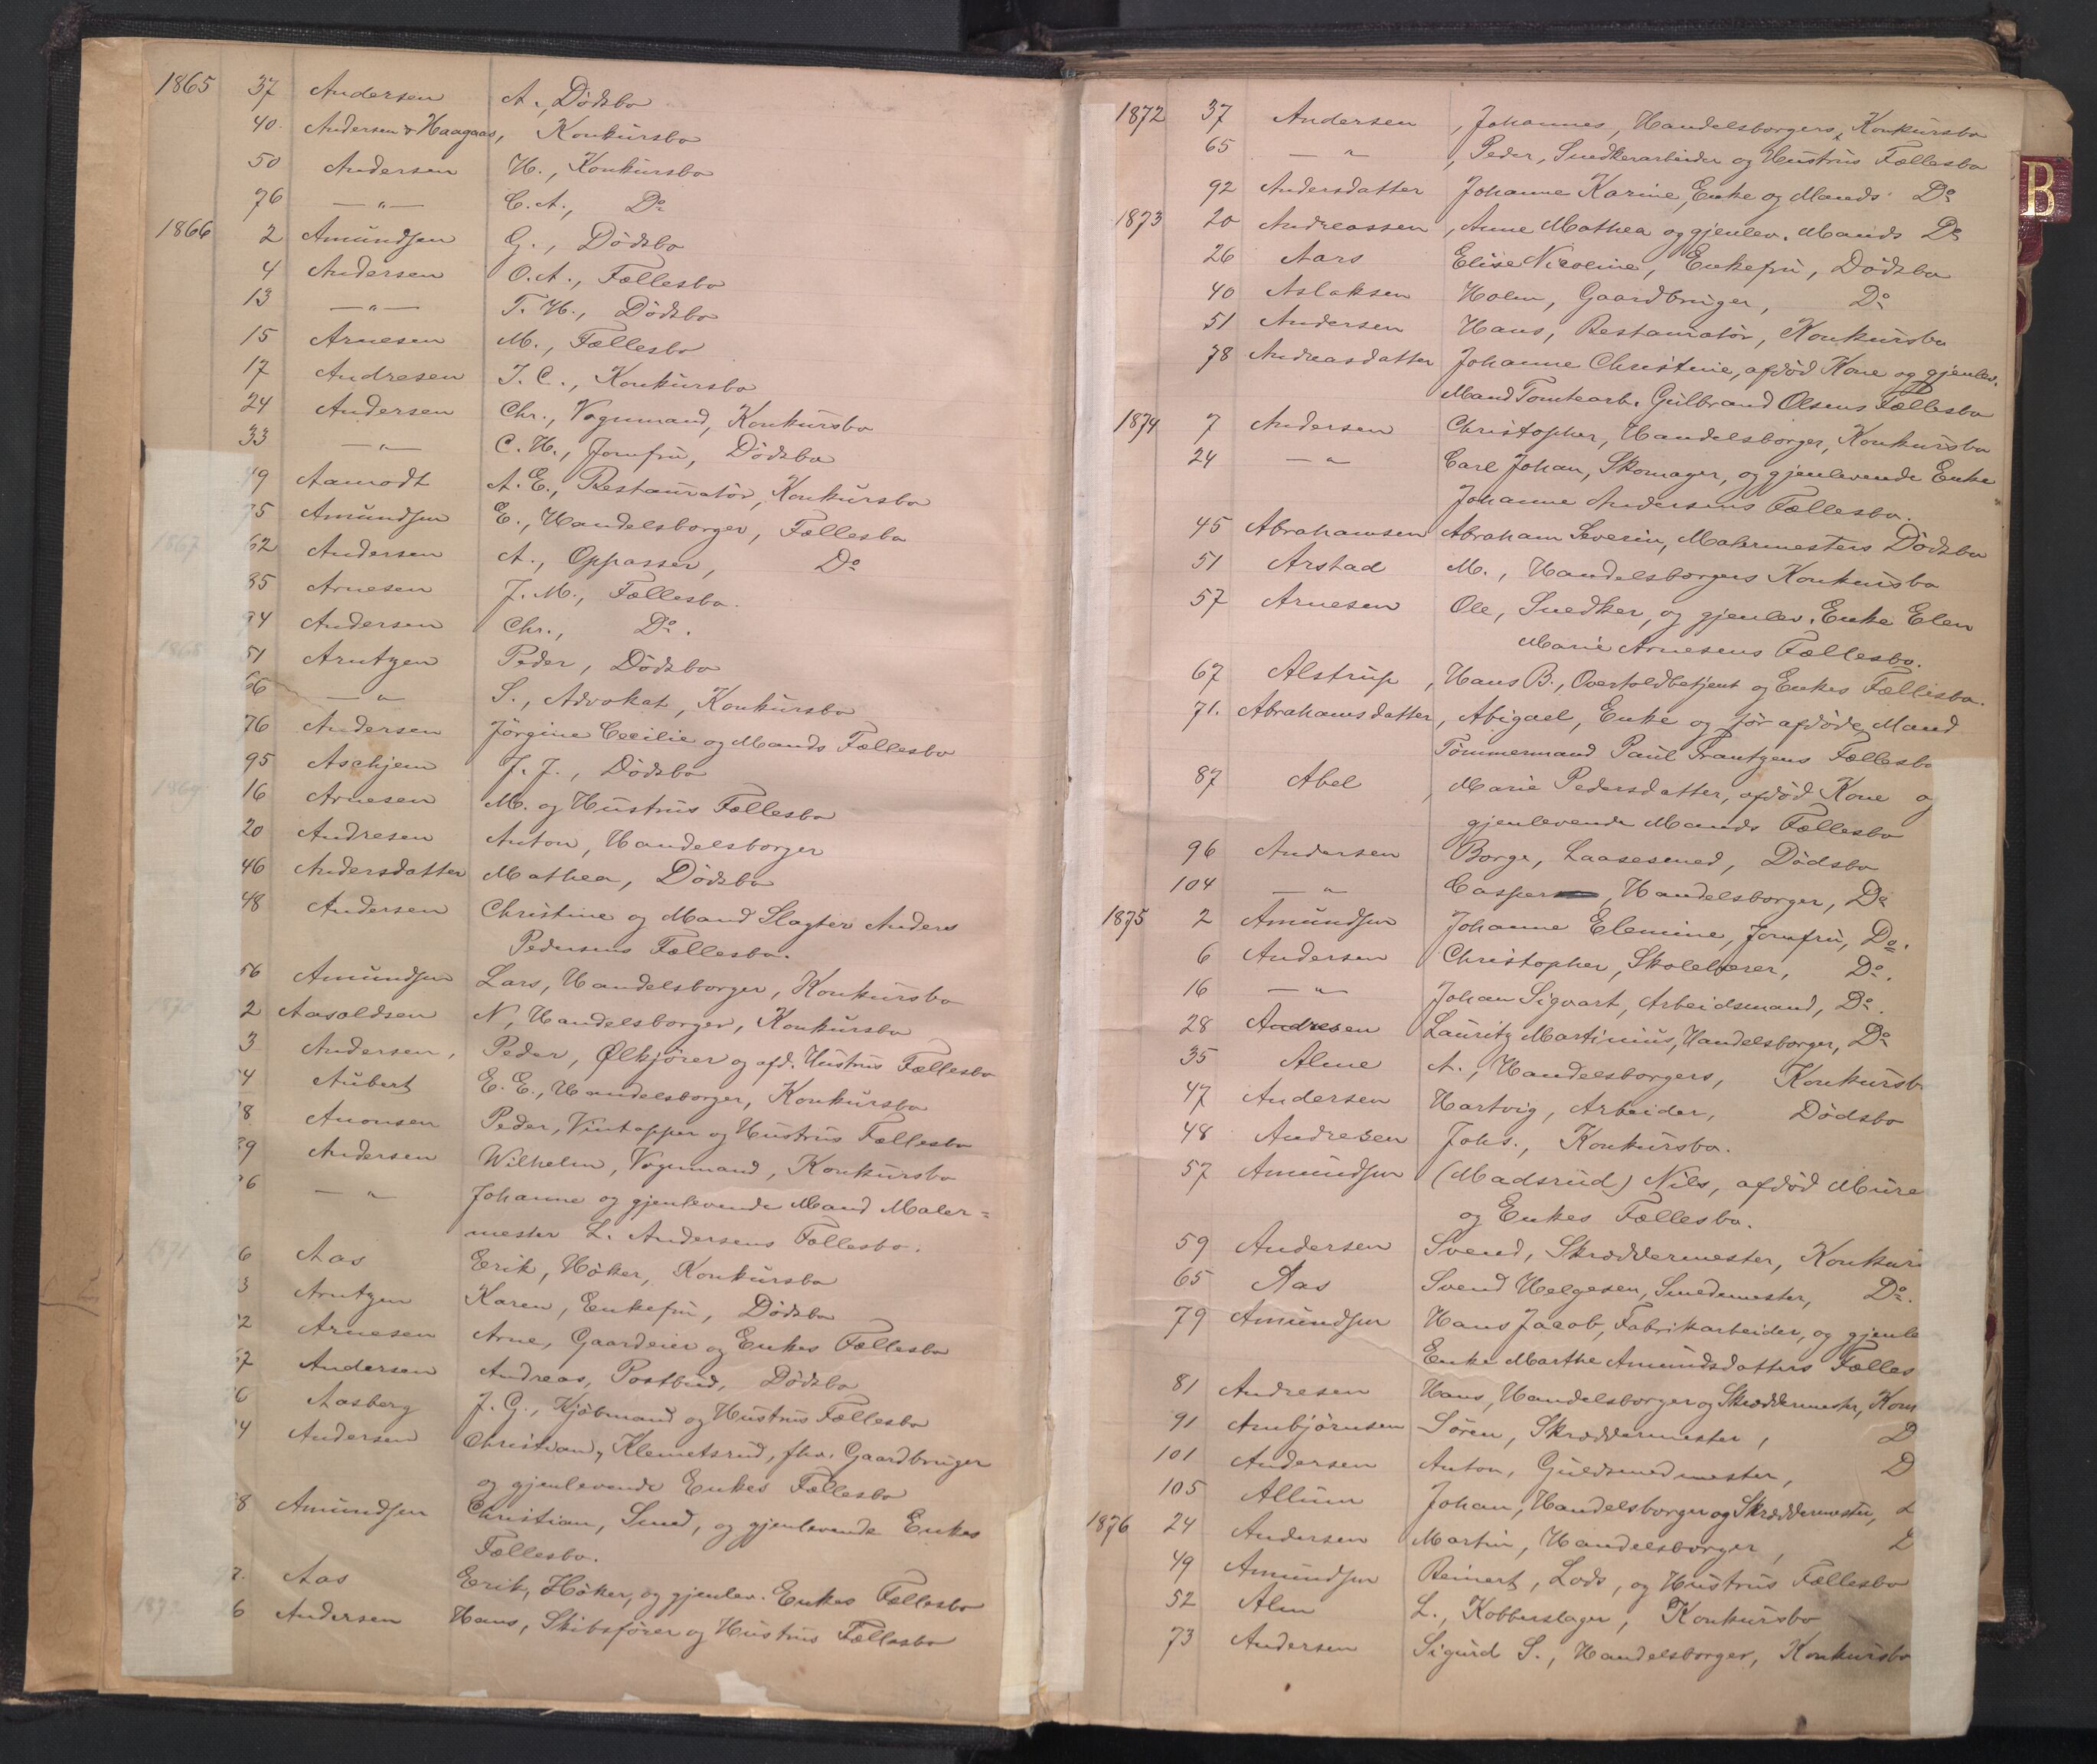 1865 37 Andersen A., Dödsbo
40. Andersen & Haagaas, Konkürsbo
50 Andersen H., Konkürsbo
76 —„— C. A., Do
1866 2 Amündsen G., Dödsbo
4 Andersen O. A., Fællesbo
13 —„— T. H., Dödsbo
15 Arnesen M., Fællesbo
17 Andresen J. C., Konkürsbo
24 Andersen Chr., Vognmand, Konkürsbo
33 —„— C. H., Jomfrü, Dödsbo
49 Aamodt A. E., Restauratör, Konkürsbo
75 Amündsen E., Handelsborger, Fællesbo
1867 62 Andersen A., Oppasser, Do
85 Arnesen J. M., Fællesbo.
94 Andersen Chr., Do.
1868 51 Arntzen Peder, Dödsbo
66 —„— S., Advokat, Konkürsbo
76 Andersen Jörgine Cecilie og Mands Fællesbo
95 Aschjem J. J., Dödsbo
1869 16 Arnesen M. og Hüstrüs Fællesbo
20 Andresen Anton, Handelsborger
46 Andersdatter Mathea, Dödsbo
48 Andersen Christine og Mand Slagter Anders
Pedersens Fællesbo.
56 Amündsen Lars, Handelsborger, Konkürsbo
1870 2 Aasoldsen N, Handelsborger, Konkürsbo
3 Andersen, Peder, Ølkjörer og afd. Hüstrüs Fællesbo
4 Aübert E. E., Handelsborger, Konkürsbo
8 Anonsen Peder, Vintapper og Hüstrüs Fællesbo
39 Andersen Wilhelm, Vognmand, Konkürsbo
6 —„ Johanne og gjenlevende Mand Maler=
mester L. Andersens Fællesbo.
1871 6 Aas Erik, Höker, Konkürsbo
3 Arntzen Karen, Enkefrü, Dödsbo
2 Arnesen Arne, Gaardeier og Enkes Fællesbo
7 Andersen Andreas, Postbud, Dödsbo
6 Aasberg J. G., Kjöbmand og Hüstrüs Fællesbo
4 Andersen Christian, Klemetsrud, fhv. Gaardbruger
og gjenlevende Enkes Fællesbo
8 Amündsen Christian, Smed, og gjenlevende Enkes
Fællesbo.
7. Aas Erik, Höker, og gjenlev. Enkes Fællesbo
1872 6 Andersen Hans, Skibsförer og Hüstrüs Fællesbo
1872 37 Andersen, Johannes, Handelsborgers, Konkürsbo
65 —„—, Peder, Snedkerarbeider og Hüstrüs Fællesbo
92 Andersdatter Johanne Karine, Enke og Mands Do
1873 20 Andreassen, Anne Mathea og gjenlev. Mands Do
26 Aars Elise Nicoline, Enkefrü, Dödsbo
40 Aslaksen Holm, Gaardbruger, Do
51 Andersen Hans, Restauratör, Konkürsbo
78 Andreasdatter Johanne Christine, afdöd Kone og gjenlev.
Mand Tomtearb. Gülbrand Olsens Fællesbo
1874 7 Andersen Christopher, Handelsborger, Konkürsbo
24 —„ Carl Johan, Skomager, og gjenlevende Enke
Johanne Andersens Fællesbo.
45 Abrahamsen Abraham Severin, Malermesters Dödsbo
51 Arstad M., Handelsborgers Konkürsbo
57 Arnesen Ole, Snedker, og gjenlev. Enke Elen
Marie Arnesens Fællesbo.
67 Alstrup, Hans B., Overtoldbetjent og Enkes Fællesbo.
71. Abrahamsdatter, Abigael, Enke og för afdöde Mand
Tömmermand Paul Frantzens Fællesbo
87 Abel, Marie Pedersdatter, afdöd Kone og
gjenlevende Mands Fællesbo
96 Andersen Borge, Laasesmed, Dödsbo
104 —„ Casper, Handelsborger, Do
1875 2 Amündsen Johanne Elemine, Jomfrü, Do.
6 Andersen Christopher, Skolelærer, Do.
16 —„ Johan Sigvart, Arbeidsmand, Do.
28 Andresen Lauritz Martinius, Handelsborger, Do
35 Alme A., Handelsborgers, Konkürsb
47 Andersen Hartvig, Arbeider, Dödsbo
48 Andresen Johs., Konkürsbo.
57 Amündsen (Madsrüd) Nils, afdöd Müre
og Enkes Fællesbo.
59 Andersen Svend, Skræddermester, Konkür
65 Aas Svend Helgesen, Smedemester, Do.
79 Amündsen Hans Jacob, Fabrikarbeider, og gjenle
Enke Marthe Amündsdatters Fælles
81 Andresen Hans, Handelsborger og Skræddermester, Kon
91 Arnbjörnsen Sören, Skræddermester, D
101 Andersen Anton, Güldsmedmester, D
105 Allum Johan, Handelsborger og Skræddermester, D
1876 24 Andersen Martin, Handelsborger, D
49 Amündsen Reinert, Lods, og Hüstrüs Fællesbo
52 Alm L., Kobberslager, Konkürsbo
73 Andersen Sigurd S., Handelsborger, Konkürsbo
B